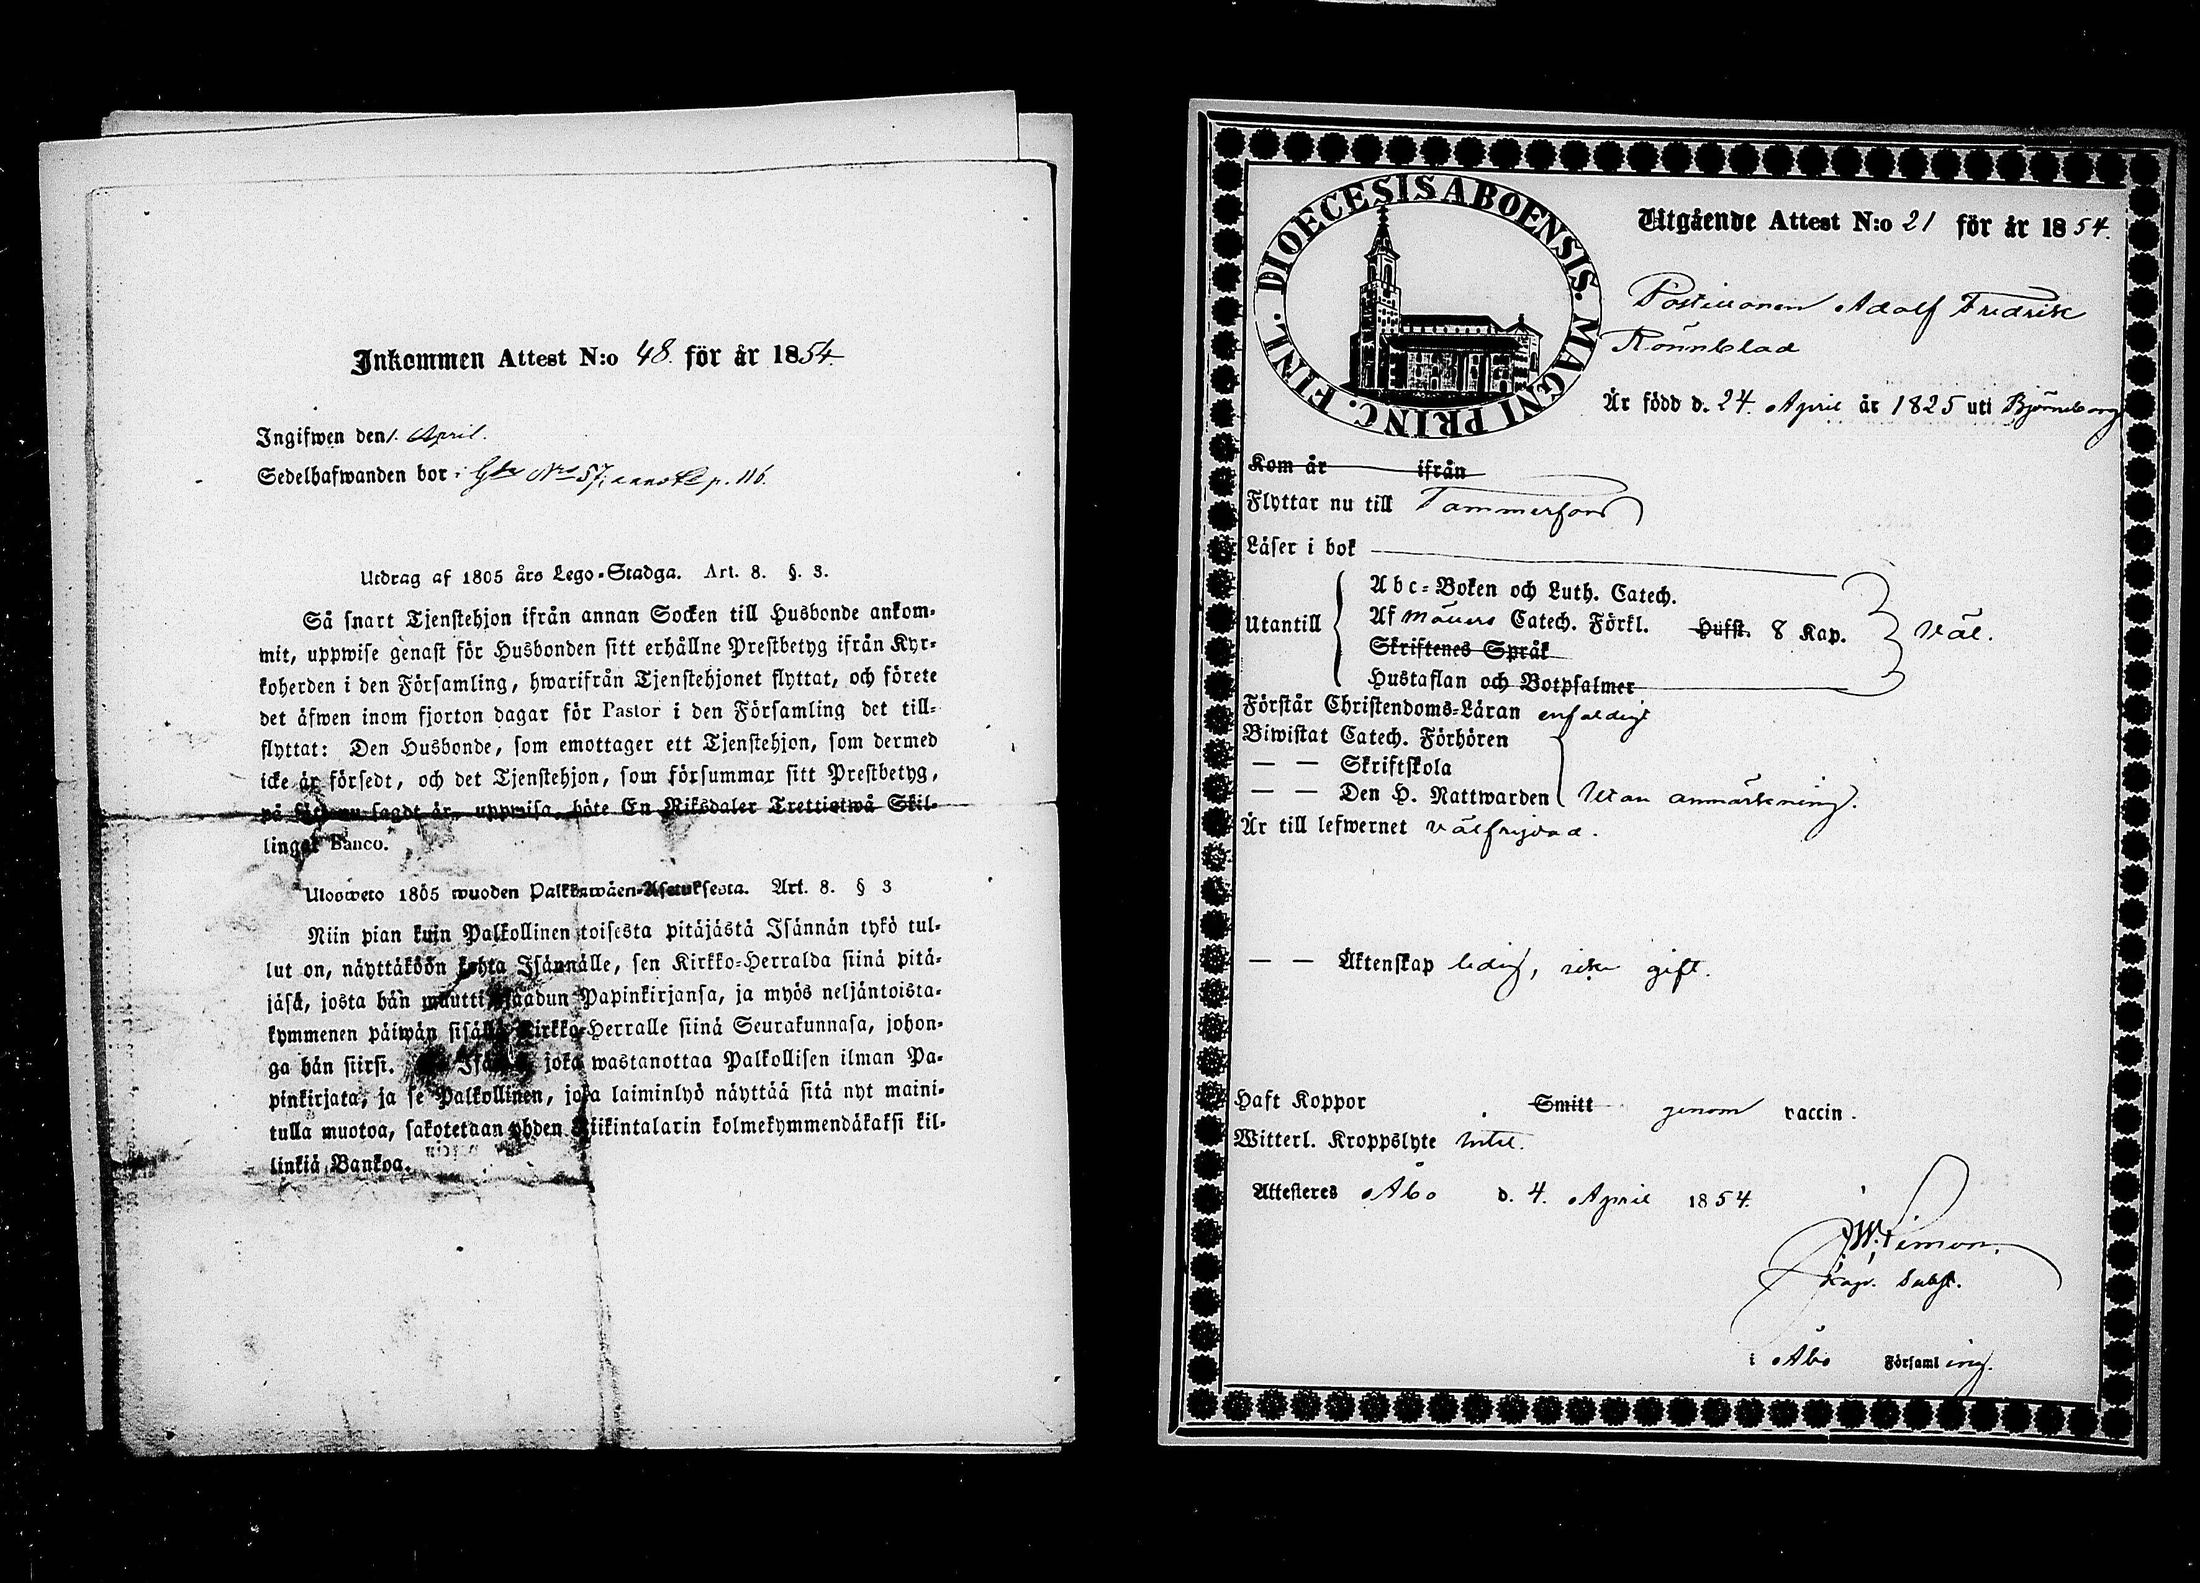 Inkommen Attest N:o 48. för år 1854.
Ingifwen den 1. April.
Sedelhafwanden bor i Gån Nro 57, p. 116.
Utdrag af 1805 års Lego-Stadga. Art. 8. §. 3.
Så snart Tjenstehjon ifrån annan Socken till Husbonde ankom-
mit, uppwise genast för Husbonden sitt erhållne Prestbetyg ifrån Kyr-
koherden i den Församling, hwarifrån Tjenstehjonet flyttat, och förete
det äfwen inom fjorton dagar för Pastor i den Församling det till-
flyttat: Den Husbonde, som emottager ett Tjenstehjon, som dermed
icke är försedt, och det Tjenstehjon, som försummar sitt Prestbetyg,
på sätt nu sagdt är, uppwisa, böte En Riksdaler Trettiotwå Skil-
lingar Banco.
Ulosweto 1805 wuoden Palkkawäen-Asetuksesta. Art. 8. § 3
Niin pian kuin Palkollinen toisesta pitäjästä Isännän tykö tul-
lut on, näyttäköön kohta Isännälle, sen Kirkko-Herralda siinä pitä-
jäsä, josta hän muutti, saadun Papinkirjansa, ja myös neljäntoista-
kymmenen päiwän sisällä Kirkko-Herralle siinä Seurakunnasa, johon-
ga hän siirsi. Isäntä, joka wastanottaa Palkollisen ilman Pa-
pinkirjata, ja se Palkollinen, joka laiminlyö näyttää sitä nyt maini-
tulla muotoa, sakotetaan yhden Riikintalarin kolmekymmendäkaksi kil-
linkiä Bankoa.
DIOECESIS ABOENSIS. MAGNI PRINC. FINL.
Utgående Attest N:o 21 för år 1854.
Postillionen Adolf Fredrik
Rönnblad
Är född d. 24. April år 1825 uti Björneborg
Kom år ifrån
Flyttar nu till Tammerfors
Läser i bok
Utantill
Abc-Boken och Luth. Catech.
Af Möllers Catech. Förkl. Hufst. 8 Kap.
Skriftenes Språk
Hustaflan och Botpsalmer
väl.
Förstår Christendoms-Läran enfaldigt
Biwistat Catech. Förhören
— — Skriftskola
— — Den H. Nattwarden Utan anmärkning.
Är till lefwernet välfrejdad.
— — Äktenskap ledig, icke gift.
Haft Koppor Smitt genom vaccin.
Witterl. Kroppslyte intet.
Attesteres Åbo d. 4. April 1854.
Kap. Subst.
i Åbo Församling.